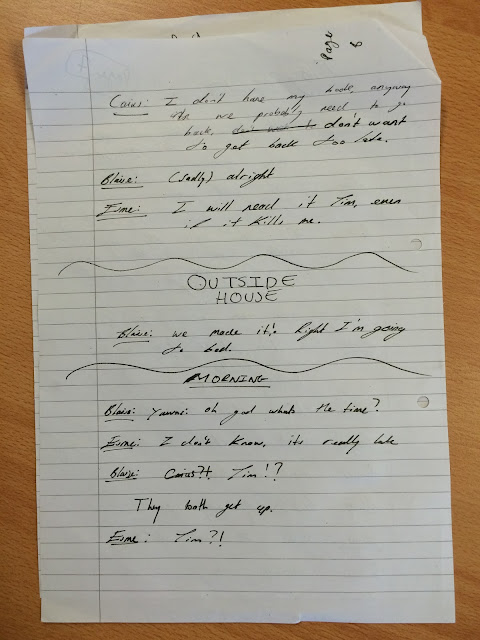 Page 8
Caius: I don't have my book, anyway
we probably need to go
back, don't want
to get back too late.
Blaise: (sadly) alright
Esme: I will read it Tim, even
if it kills me.
OUTSIDE
HOUSE
Blaise: we made it. Right I'm going
to bed.
MORNING
Blaise: Yawns: oh god whats the time?
Esme: I don't know, its really late
Blaise: Caius?! Tim!?
They both get up.
Esme: Tim?!